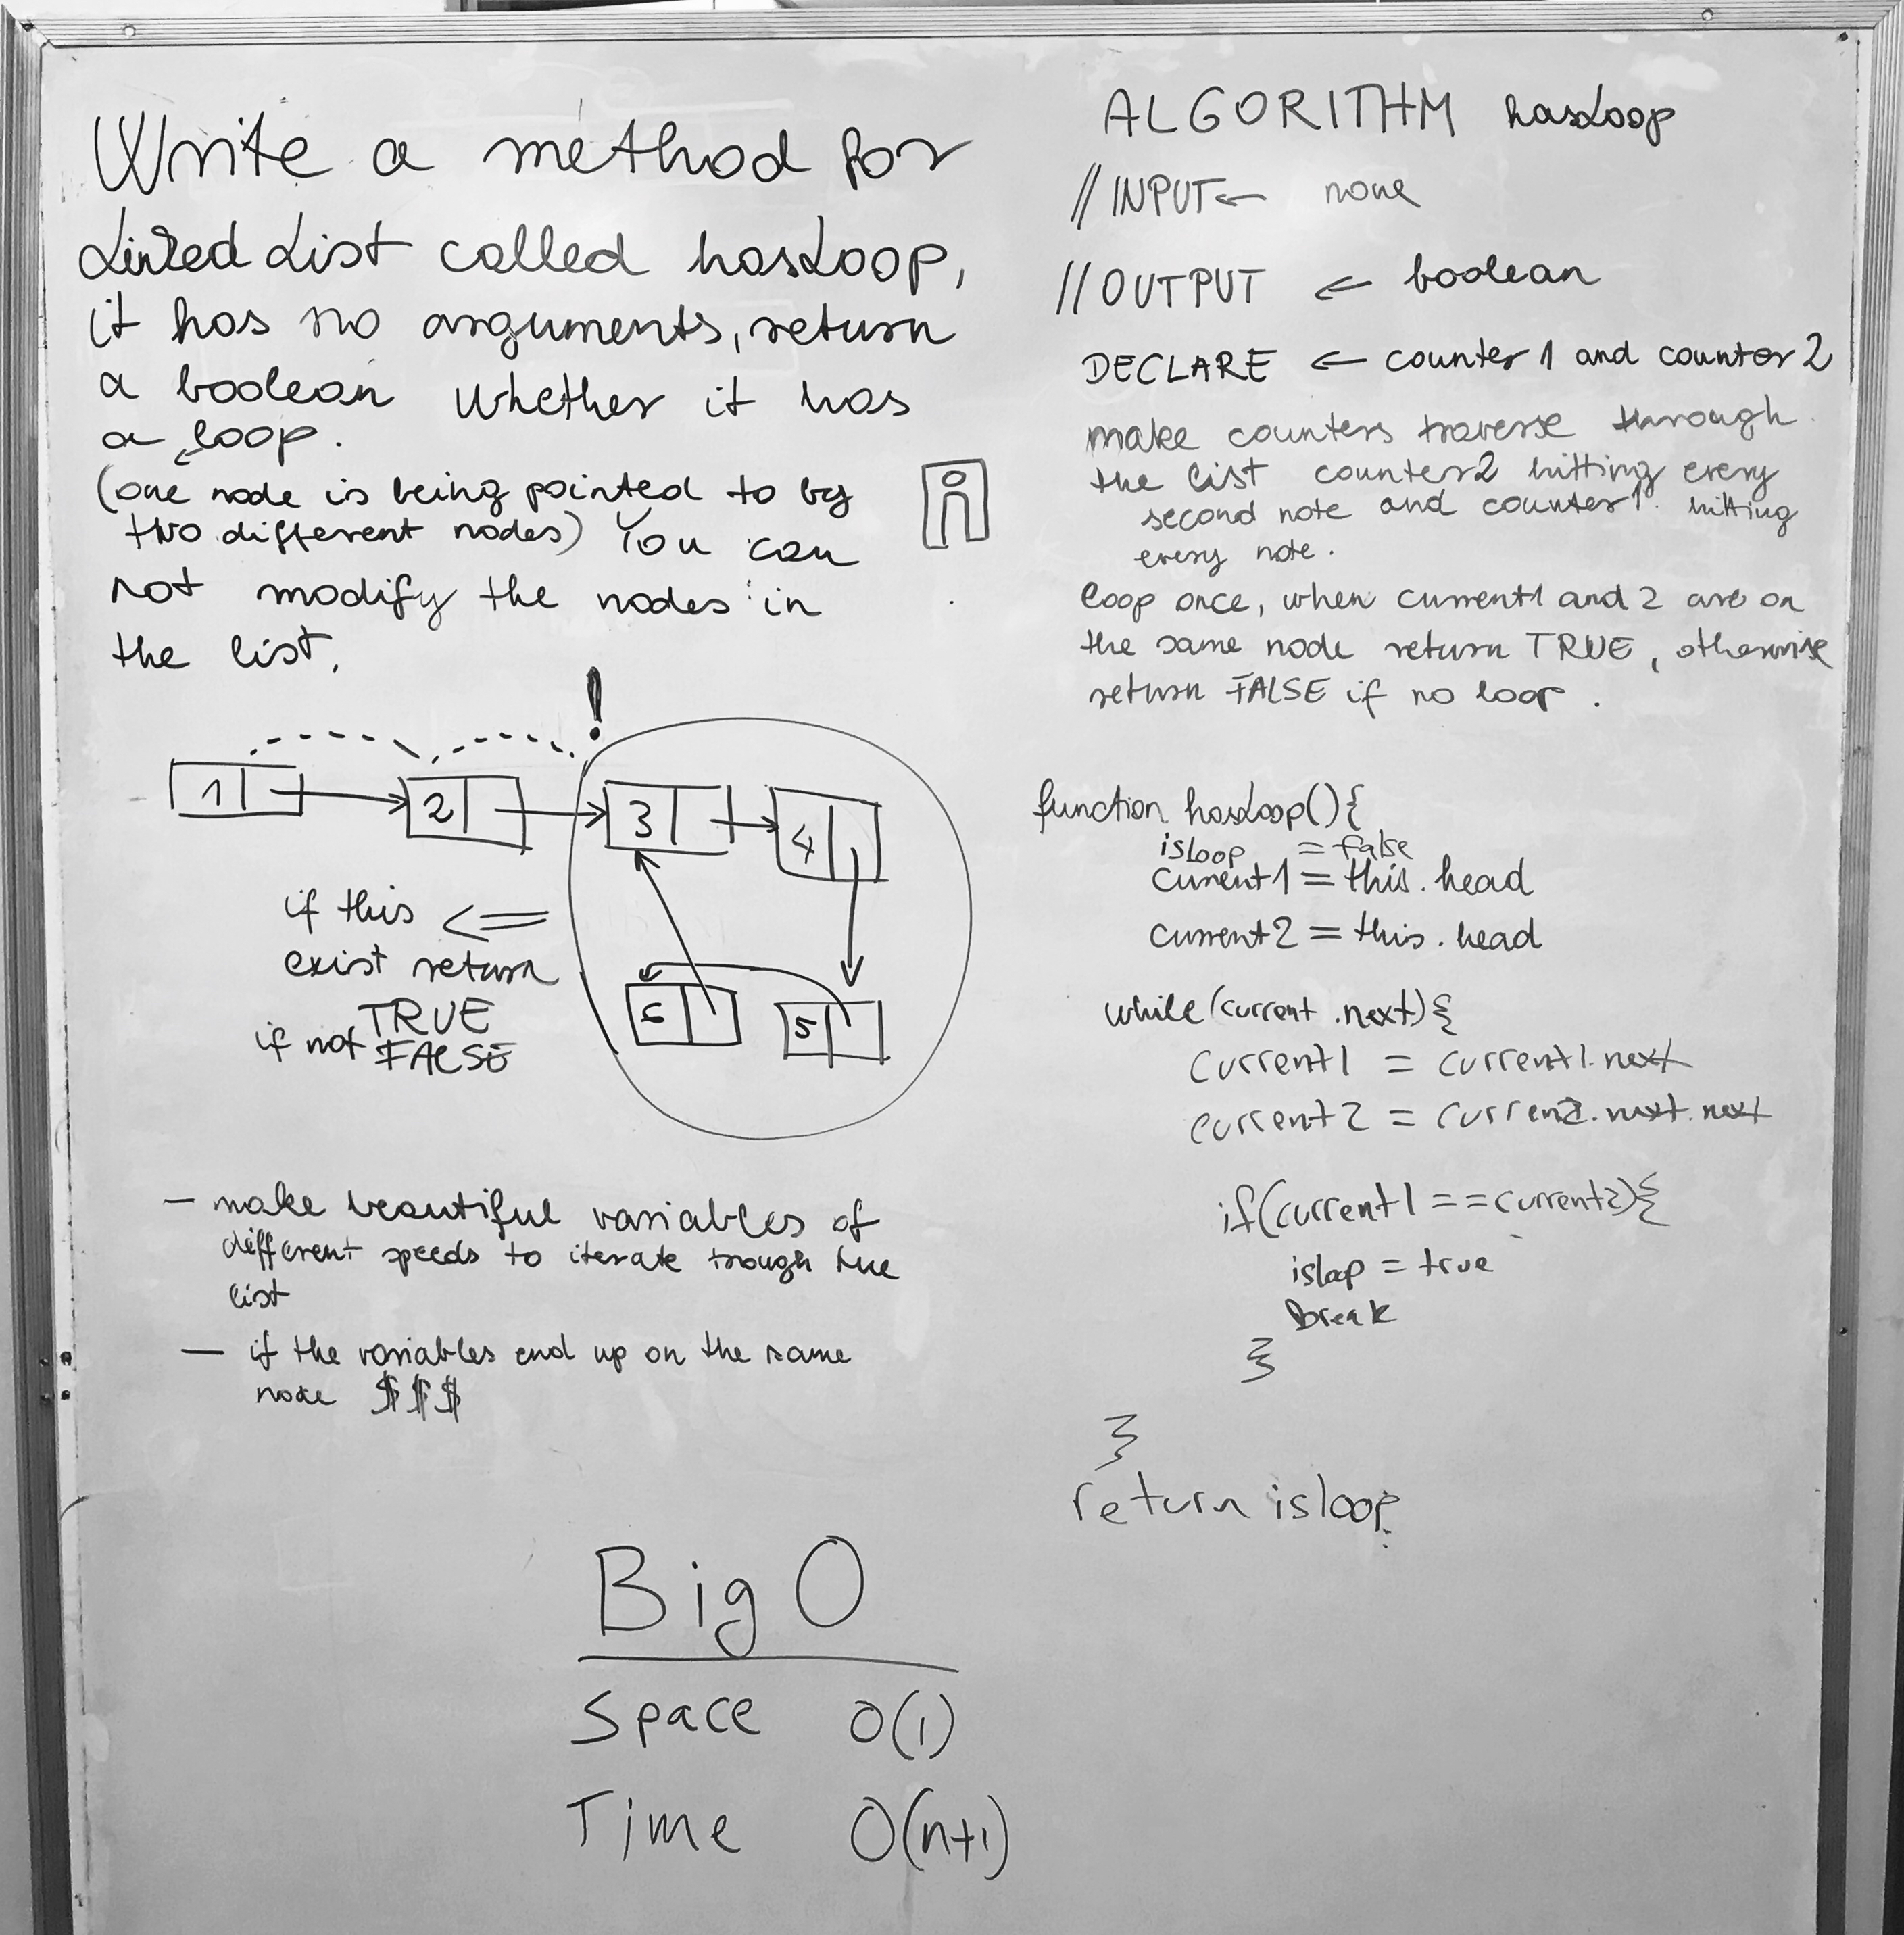 Write a method for
Linked List called hasLoop,
it has no arguments, return
a boolean whether it has
a loop.
(one node is being pointed to by
two different nodes) You can
not modify the nodes in
the list.
!
1
2
3
4
5
6
if this <=
exist return
TRUE
if not FALSE
- make beautiful variables of
different speeds to iterate trough the
list
- if the variables end up on the same
node $$$
Big O
Space O(1)
Time O(n+1)
ALGORITHM hasLoop
// INPUT ← none
// OUTPUT ← boolean
DECLARE ← counter 1 and counter 2
make counters traverse through
the list counter2 hitting every
second note and counter1 hitting
every note.
loop once, when current1 and 2 are on
the same node return TRUE, otherwise
return FALSE if no loop.
function hasLoop(){
isloop = false
current1 = this.head
current2 = this.head
while(current.next){
current1 = current1.next
current2 = curren2.next.next
if(current1 == current2){
isloop = true
break
}
}
return isloop